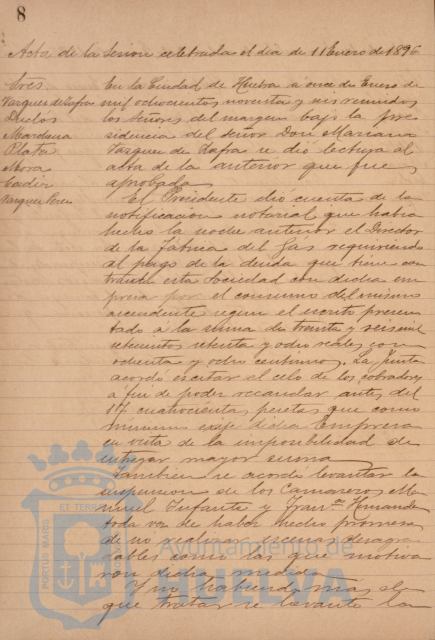 8
Acta de la Sesion celebrada el dia de 11 Enero de 1896
Sres
Vazquez de Zafra
Duclos
Mordena
Plata
Mora
Cader
Vazquez Perez
En la Ciudad de Huelva á once de Enero de
mil ochocientos noventa y seis reunidos
los Señores del margen bajo la Pre
sidencia del Señor Don Mariano
Vazquez de Zafra se dió lectura al
acta de la anterior que fue
aprobada
El Presidente dió cuenta de la
notificacion notarial que habia
hecho la noche anterior el Director
de la Fabrica del Gas requiriendo
al pago de la deuda que tiene con
traida esta Sociedad con dicha em
presa por el consumo del mismo
ascendente segun el escrito presen
tado á la suma de treinta y seis mil
setecientos setenta y ocho reales con
ochenta y ocho centimos. La Junta
acordó escitar el celo de los cobradores
á fin de poder recaudar antes del
17 cuatrocientas pesetas que como
minimun exije dicha Empresa
en vista de la imposibilidad de
entregar mayor suma
Tambien se acordó levantar la
suspension de los Camareros Ma
nuel Infante y Franco. Hernandez
toda vez de haber hecho promesa
de no realizar escenas desagra
dables como las que motiva
ron dicha medida
Y no habiendo mas de
que tratar se levantó la
PORTUS MARIS ET TERRÆ
Ayuntamiento de
HUELVA